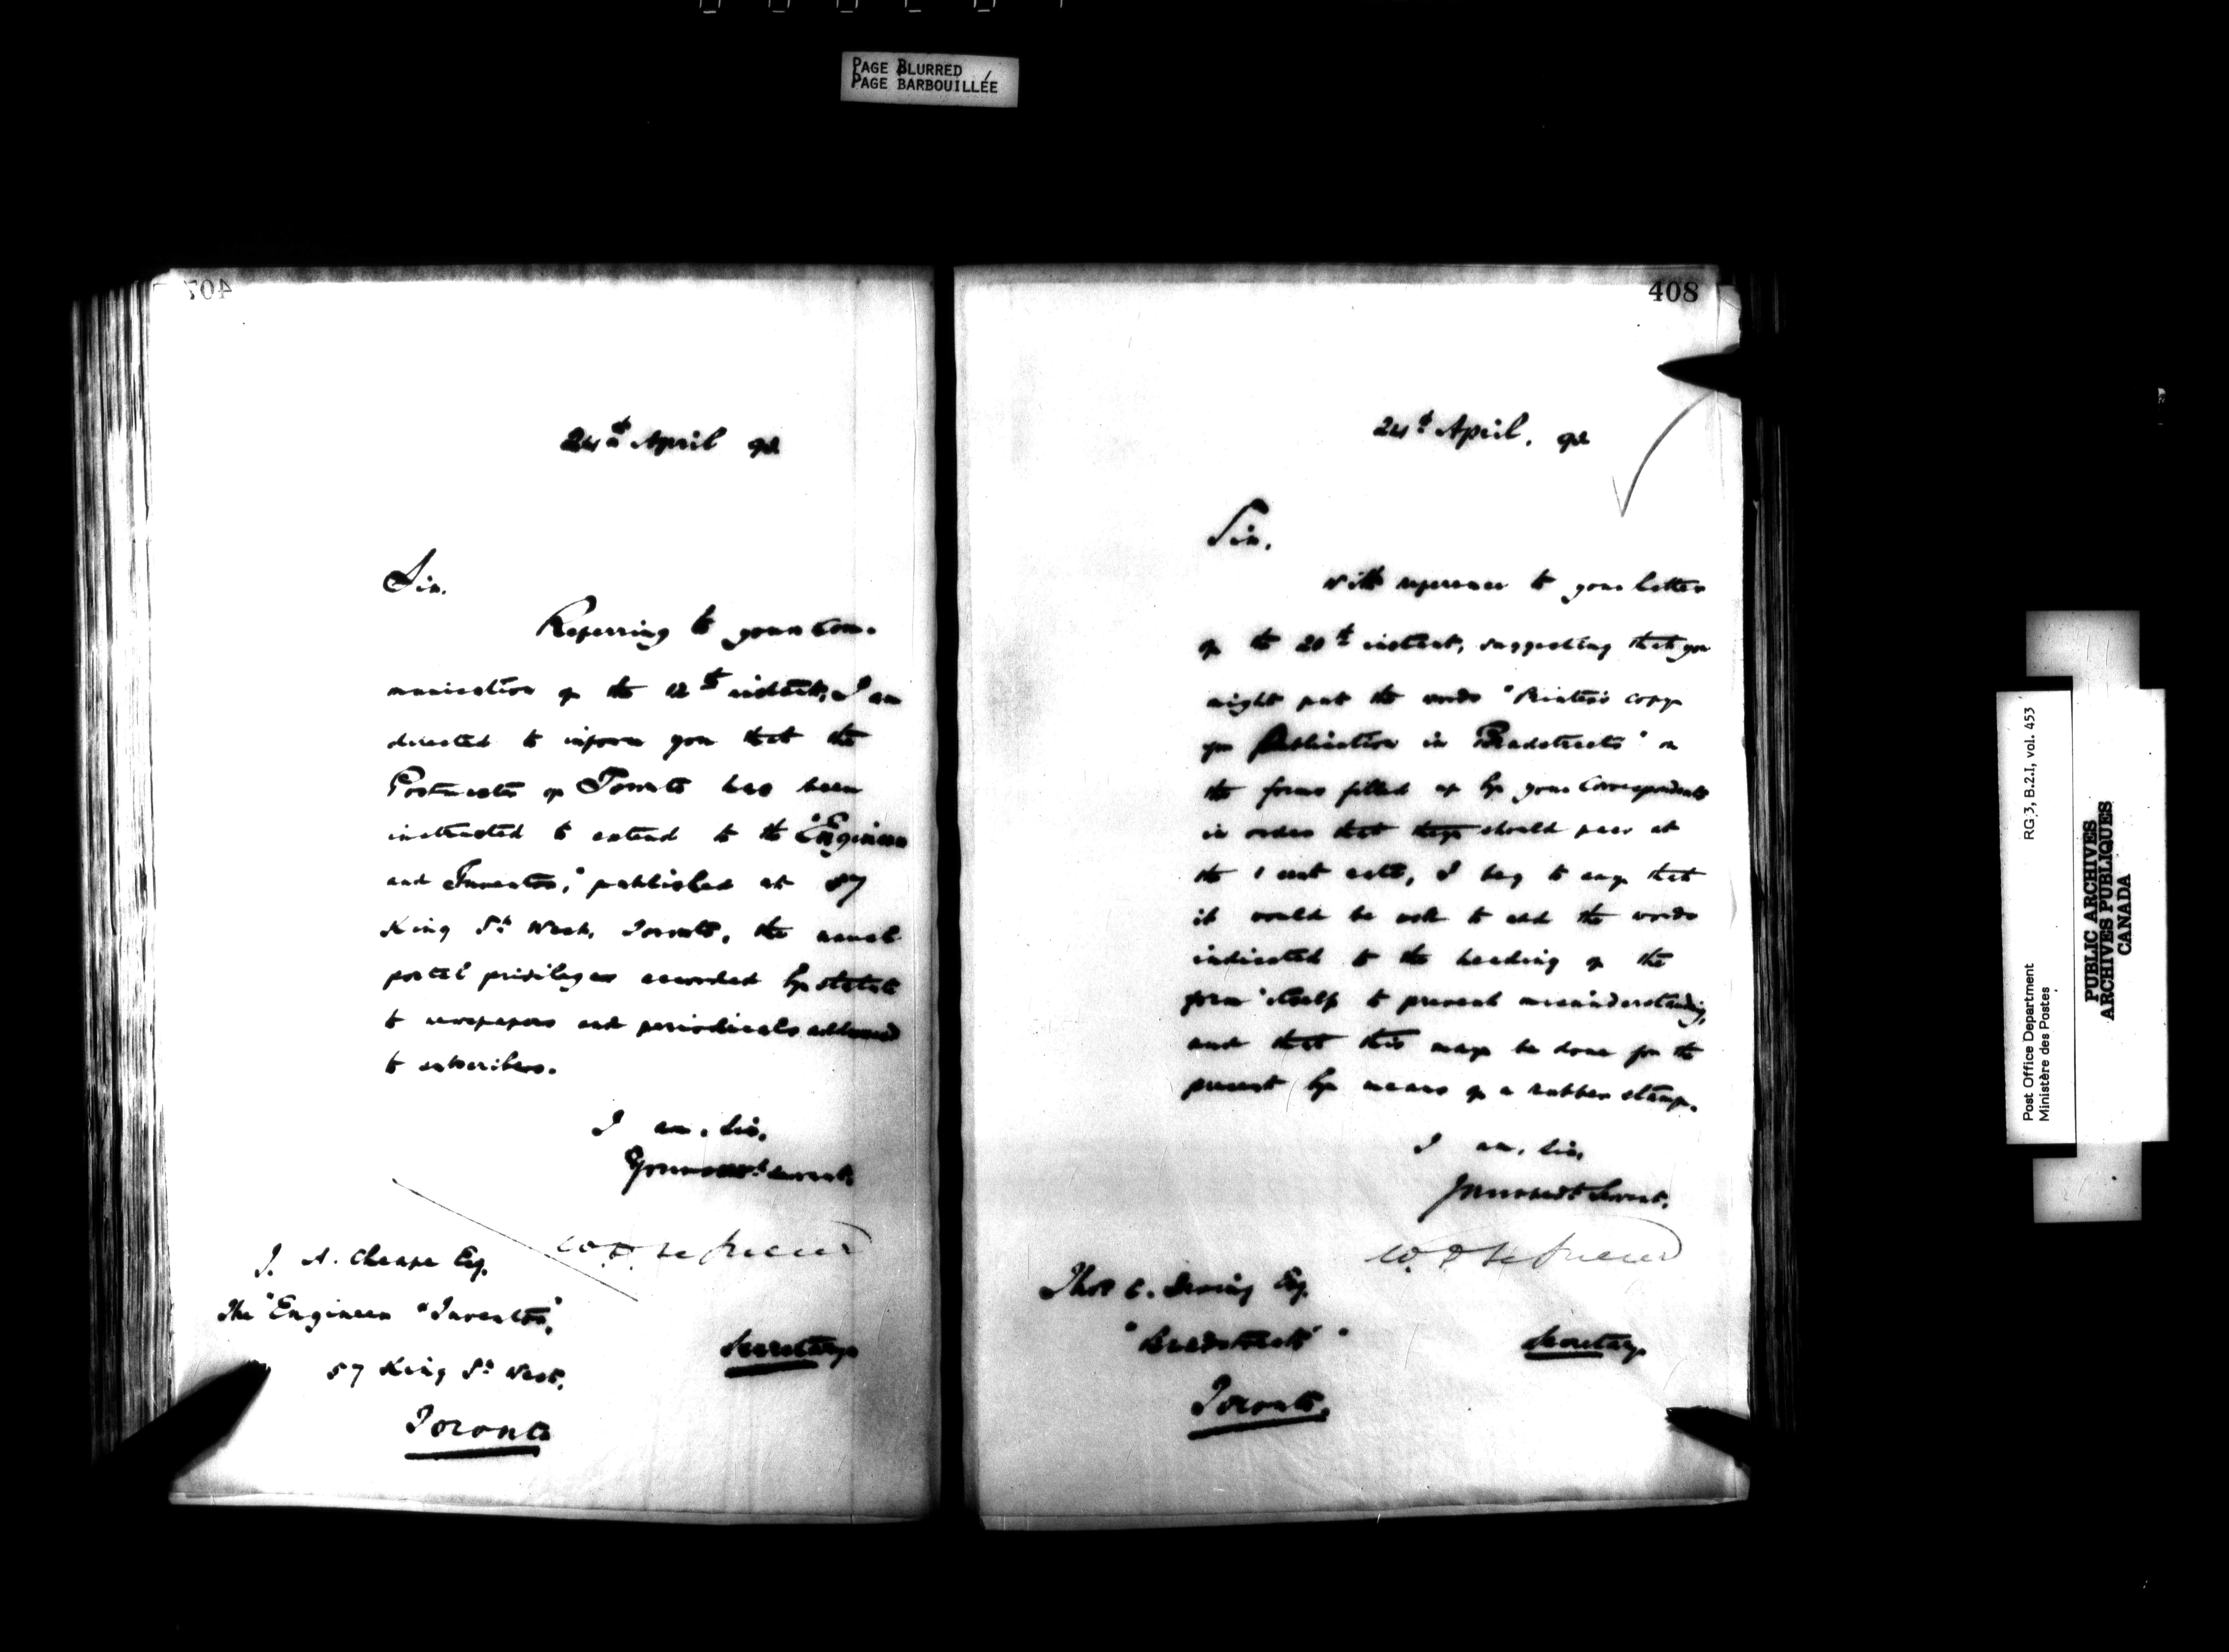 PAGE BLURRED
PAGE BARBOUILLÉE
407
24th April 92
Sir.
Referring to your Com-
munication of the 12th instant, I am
directed to inform you that the
Postmaster of Toronto has been
instructed to extend to the "Engineer
and Inventor," published at 57
King St West, Toronto, the usual
postal privileges accorded by statute
to newspapers and periodicals addressed
to subscribers.
I am, Sir,
Your obt. servant.
Secretary
J. A. Cheape Esq.
The "Engineer & Inventor",
57 King St West,
Toronto
408
24th April. 92
Sir,
With reference to your letter
of the 20th instant, suggesting that you
might put the words "Printers copy
for Publication in Bradstreets" on
the forms filled up by your Correspondents
in order that they should pass at
the 1 cent rate, I beg to say that
it would be well to add the words
indicated to the heading of the
form itself to prevent misunderstanding,
and that this may be done for the
present by means of a rubber stamp.
I am, Sir,
Your obedt Servant.
Secretary
Thos C. Irving Esq.
"Bradstreets"
Toronto.
Post Office Department
Ministère des Postes
RG 3, B.2.I, vol. 453
PUBLIC ARCHIVES
ARCHIVES PUBLIQUES
CANADA